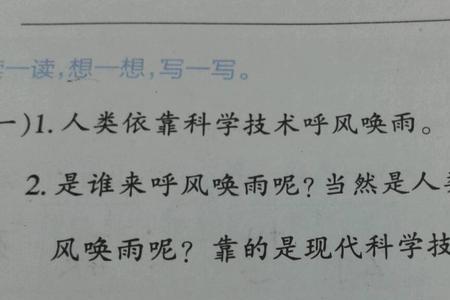 读一读,想一想,写一写。
一)1.人类依靠科学技术呼风唤雨。
2.是谁来呼风唤雨呢?当然是人
风唤雨呢?靠的是现代科学技